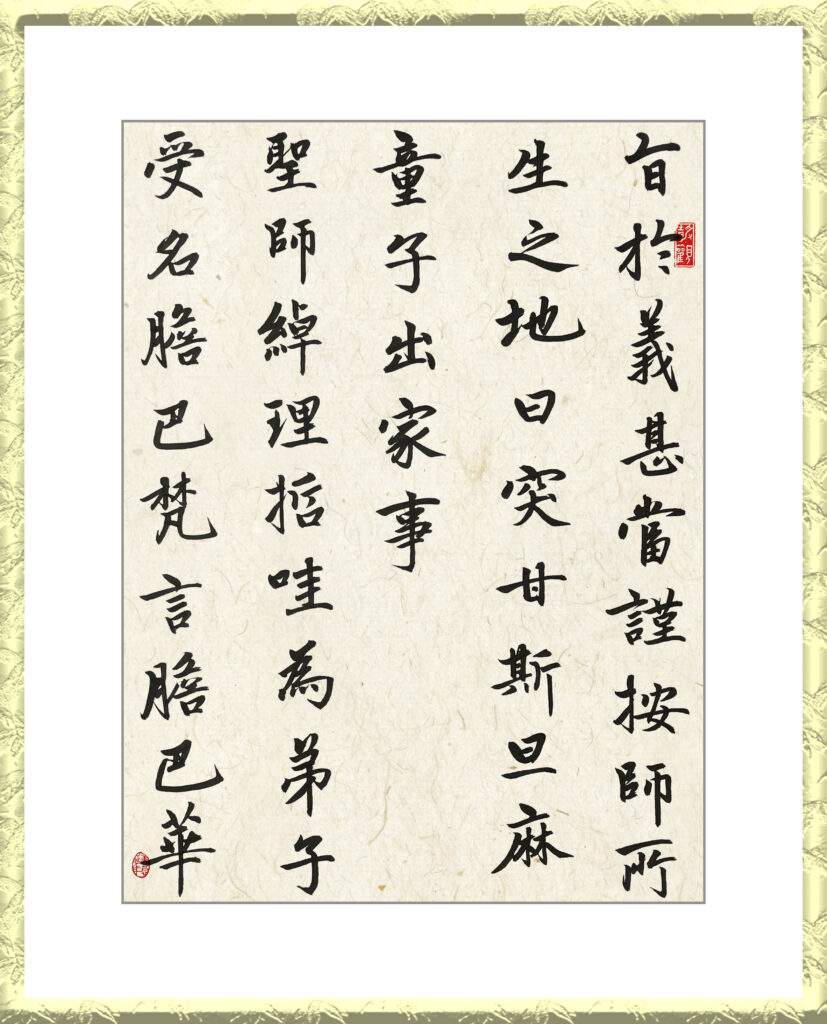 旨於義甚當謹按師所
生之地曰突甘斯旦麻
童子出家事
聖師綽理哲哇為弟子
受名膽巴梵言膽巴華